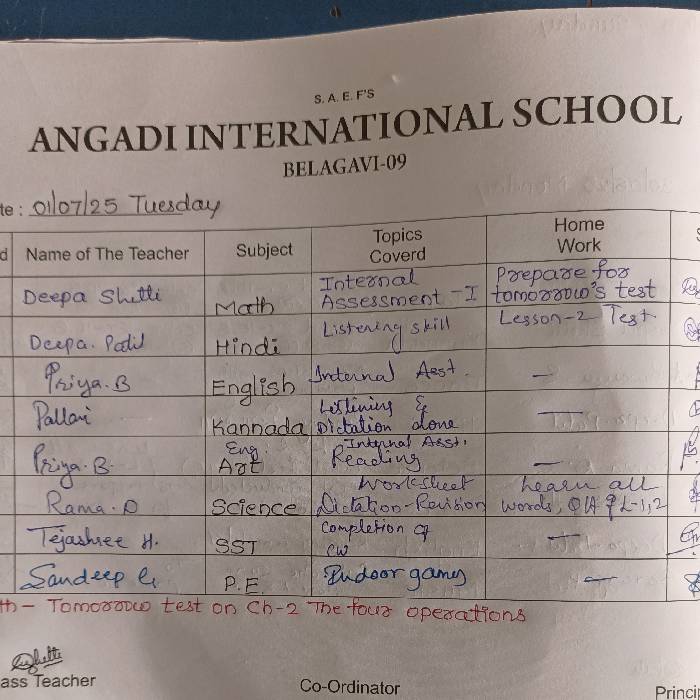 S. A. E. F'S
ANGADI INTERNATIONAL SCHOOL
BELAGAVI-09
te : 01/07/25 Tuesday
d Name of The Teacher Subject Topics Coverd Home Work S
Deepa Shetti Math Internal Assessment - I Prepare for tomorrow's test
Deepa. Patil Hindi Listening skill Lesson-2 Test.
Priya. B English Internal Asst. —
Pallavi Kannada & Dictation done —
Priya. B. Eng Art Internal Asst. Reading —
Rama. D Science Worksheet Dictation-Revision Learn all words, Q/A of L-1,2
Tejashree H. SST Completion of CW —
Sandeep G. P.E. Indoor games —
th - Tomorrow test on Ch-2 The four operations
Shetti
ass Teacher
Co-Ordinator
Princi